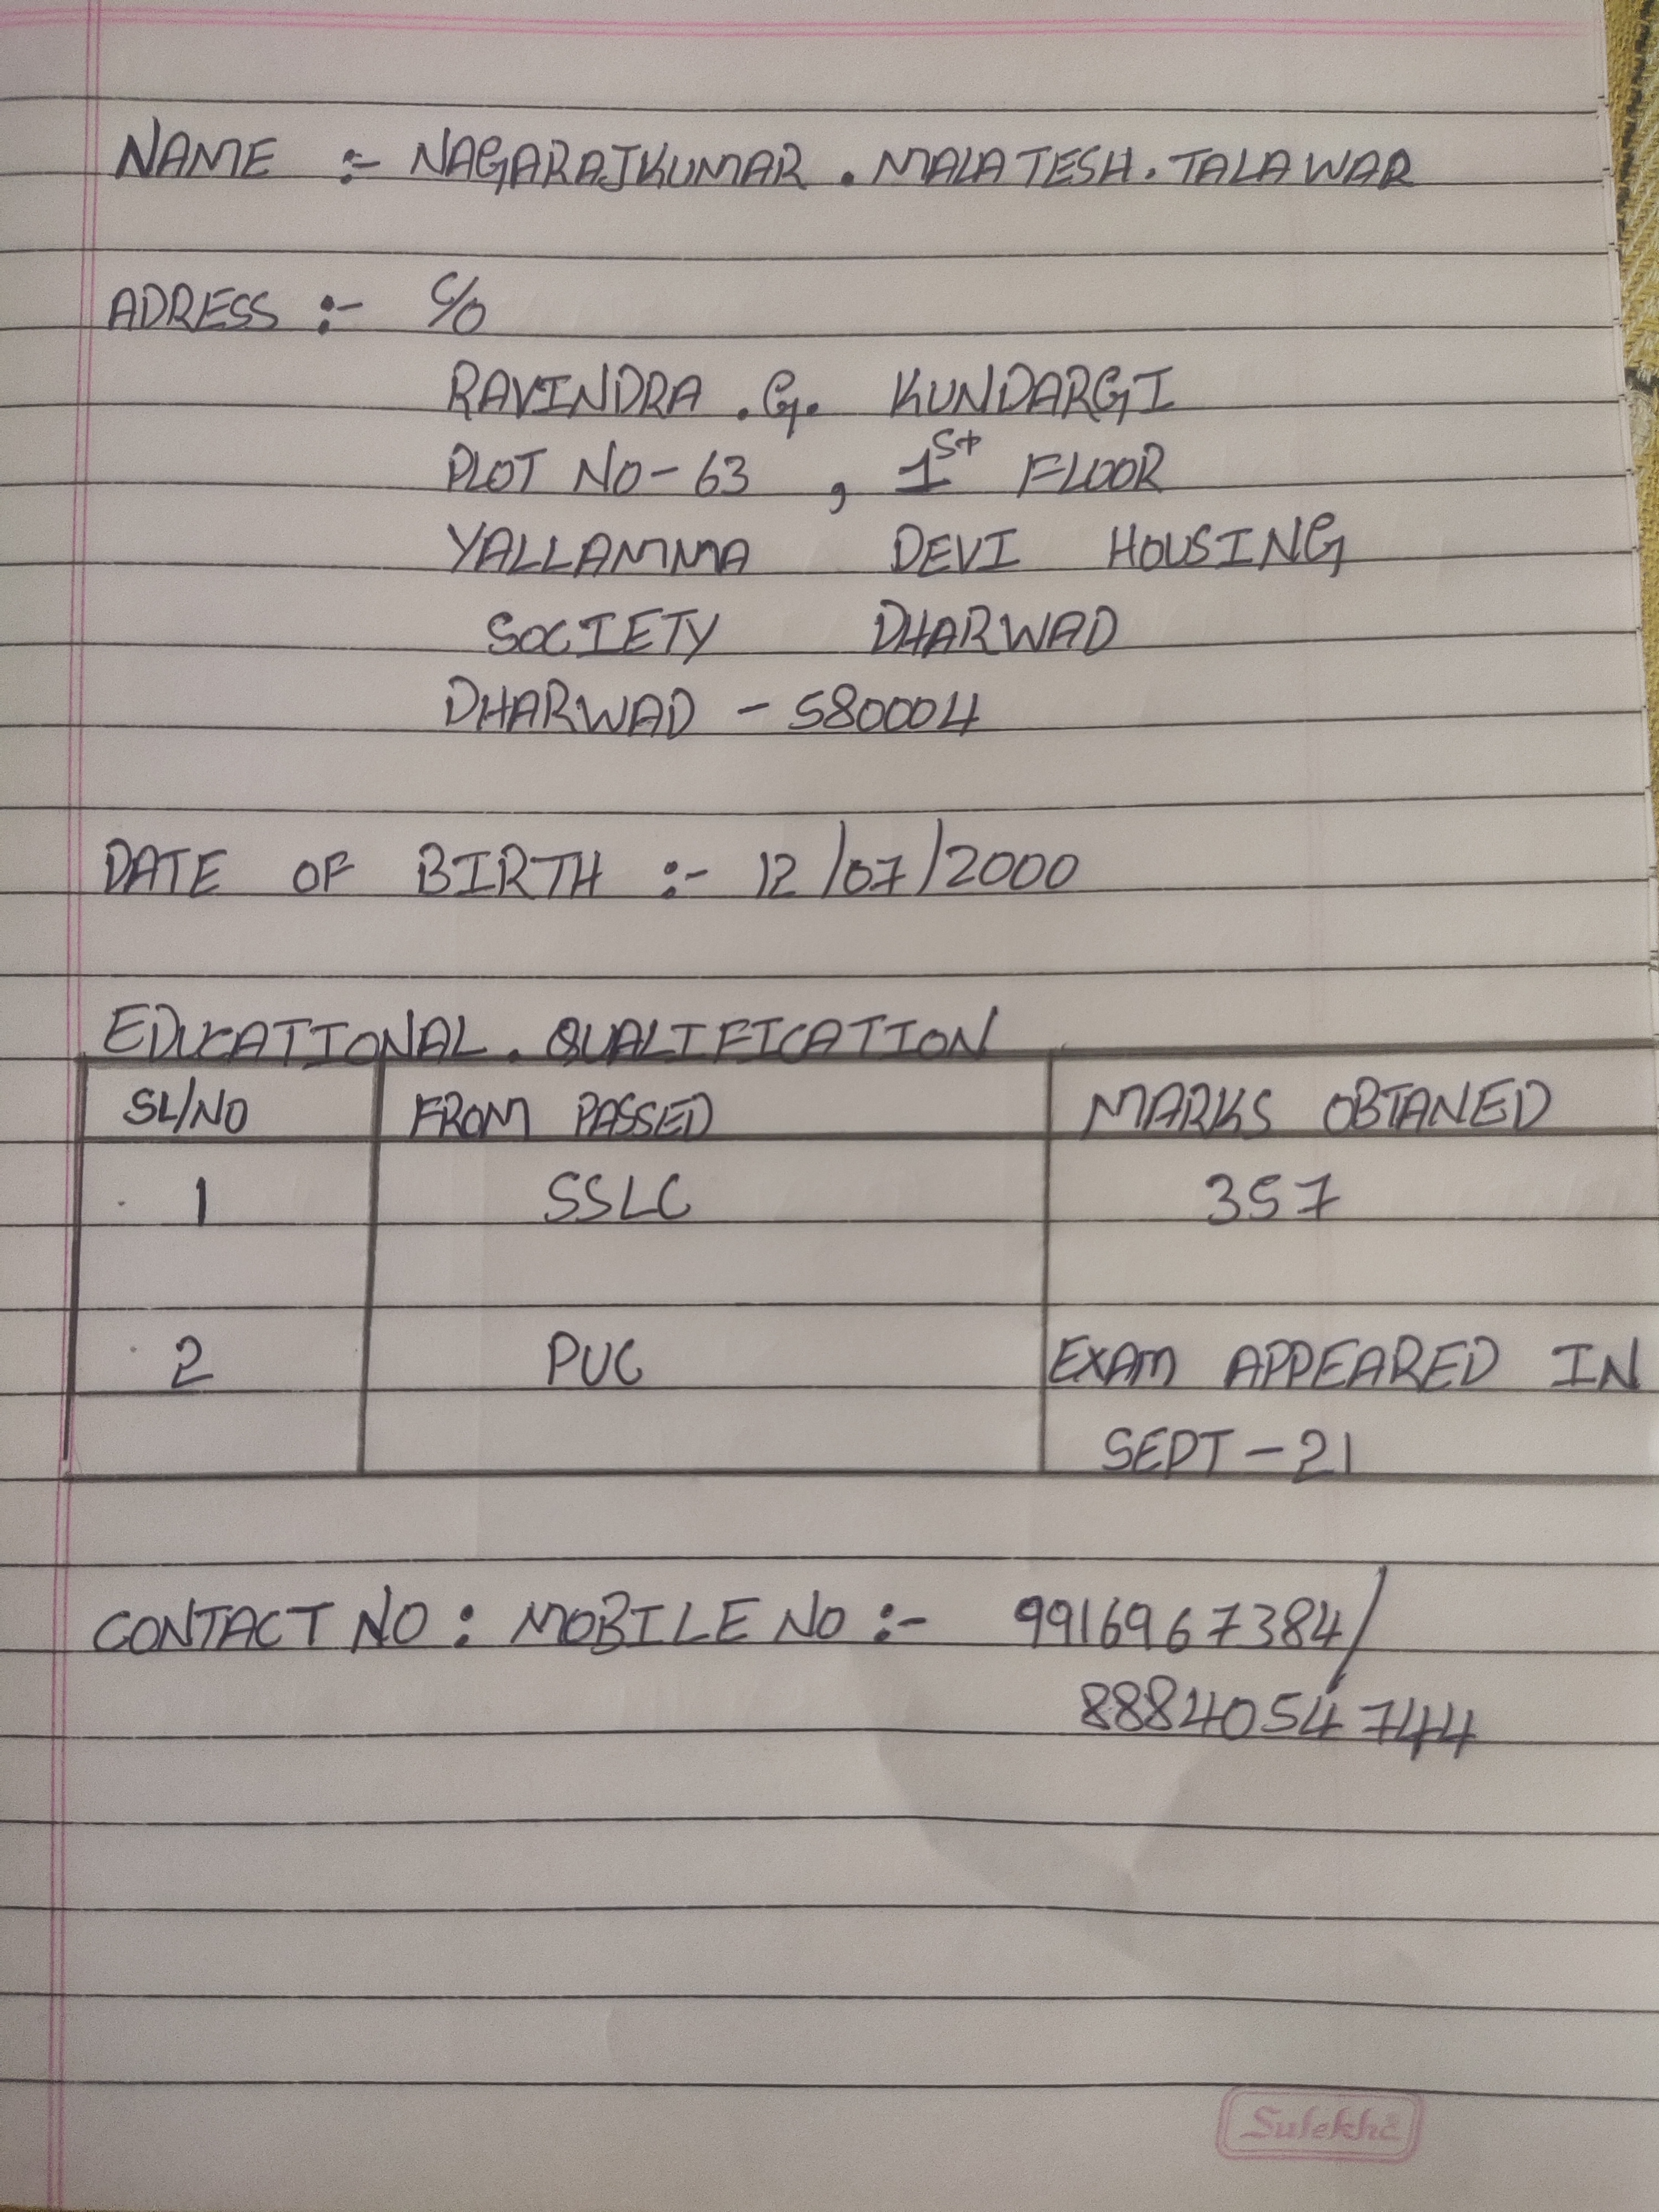 NAME :- NAGARAJKUMAR . MALATESH . TALAWAR
ADRESS :- C/O
RAVINDRA . G. KUNDARGI
PLOT NO - 63 , 1st FLOOR
YALLAMMA DEVI HOUSING
SOCIETY DHARWAD
DHARWAD - 580004
DATE OF BIRTH :- 12/07/2000
EDUCATIONAL . QUALIFICATION
SL/NO FROM PASSED MARKS OBTANED
1 SSLC 357
2 PUC EXAM APPEARED IN
SEPT - 21
CONTACT NO : MOBILE NO :- 9916967384/
8884054744
Sulekha